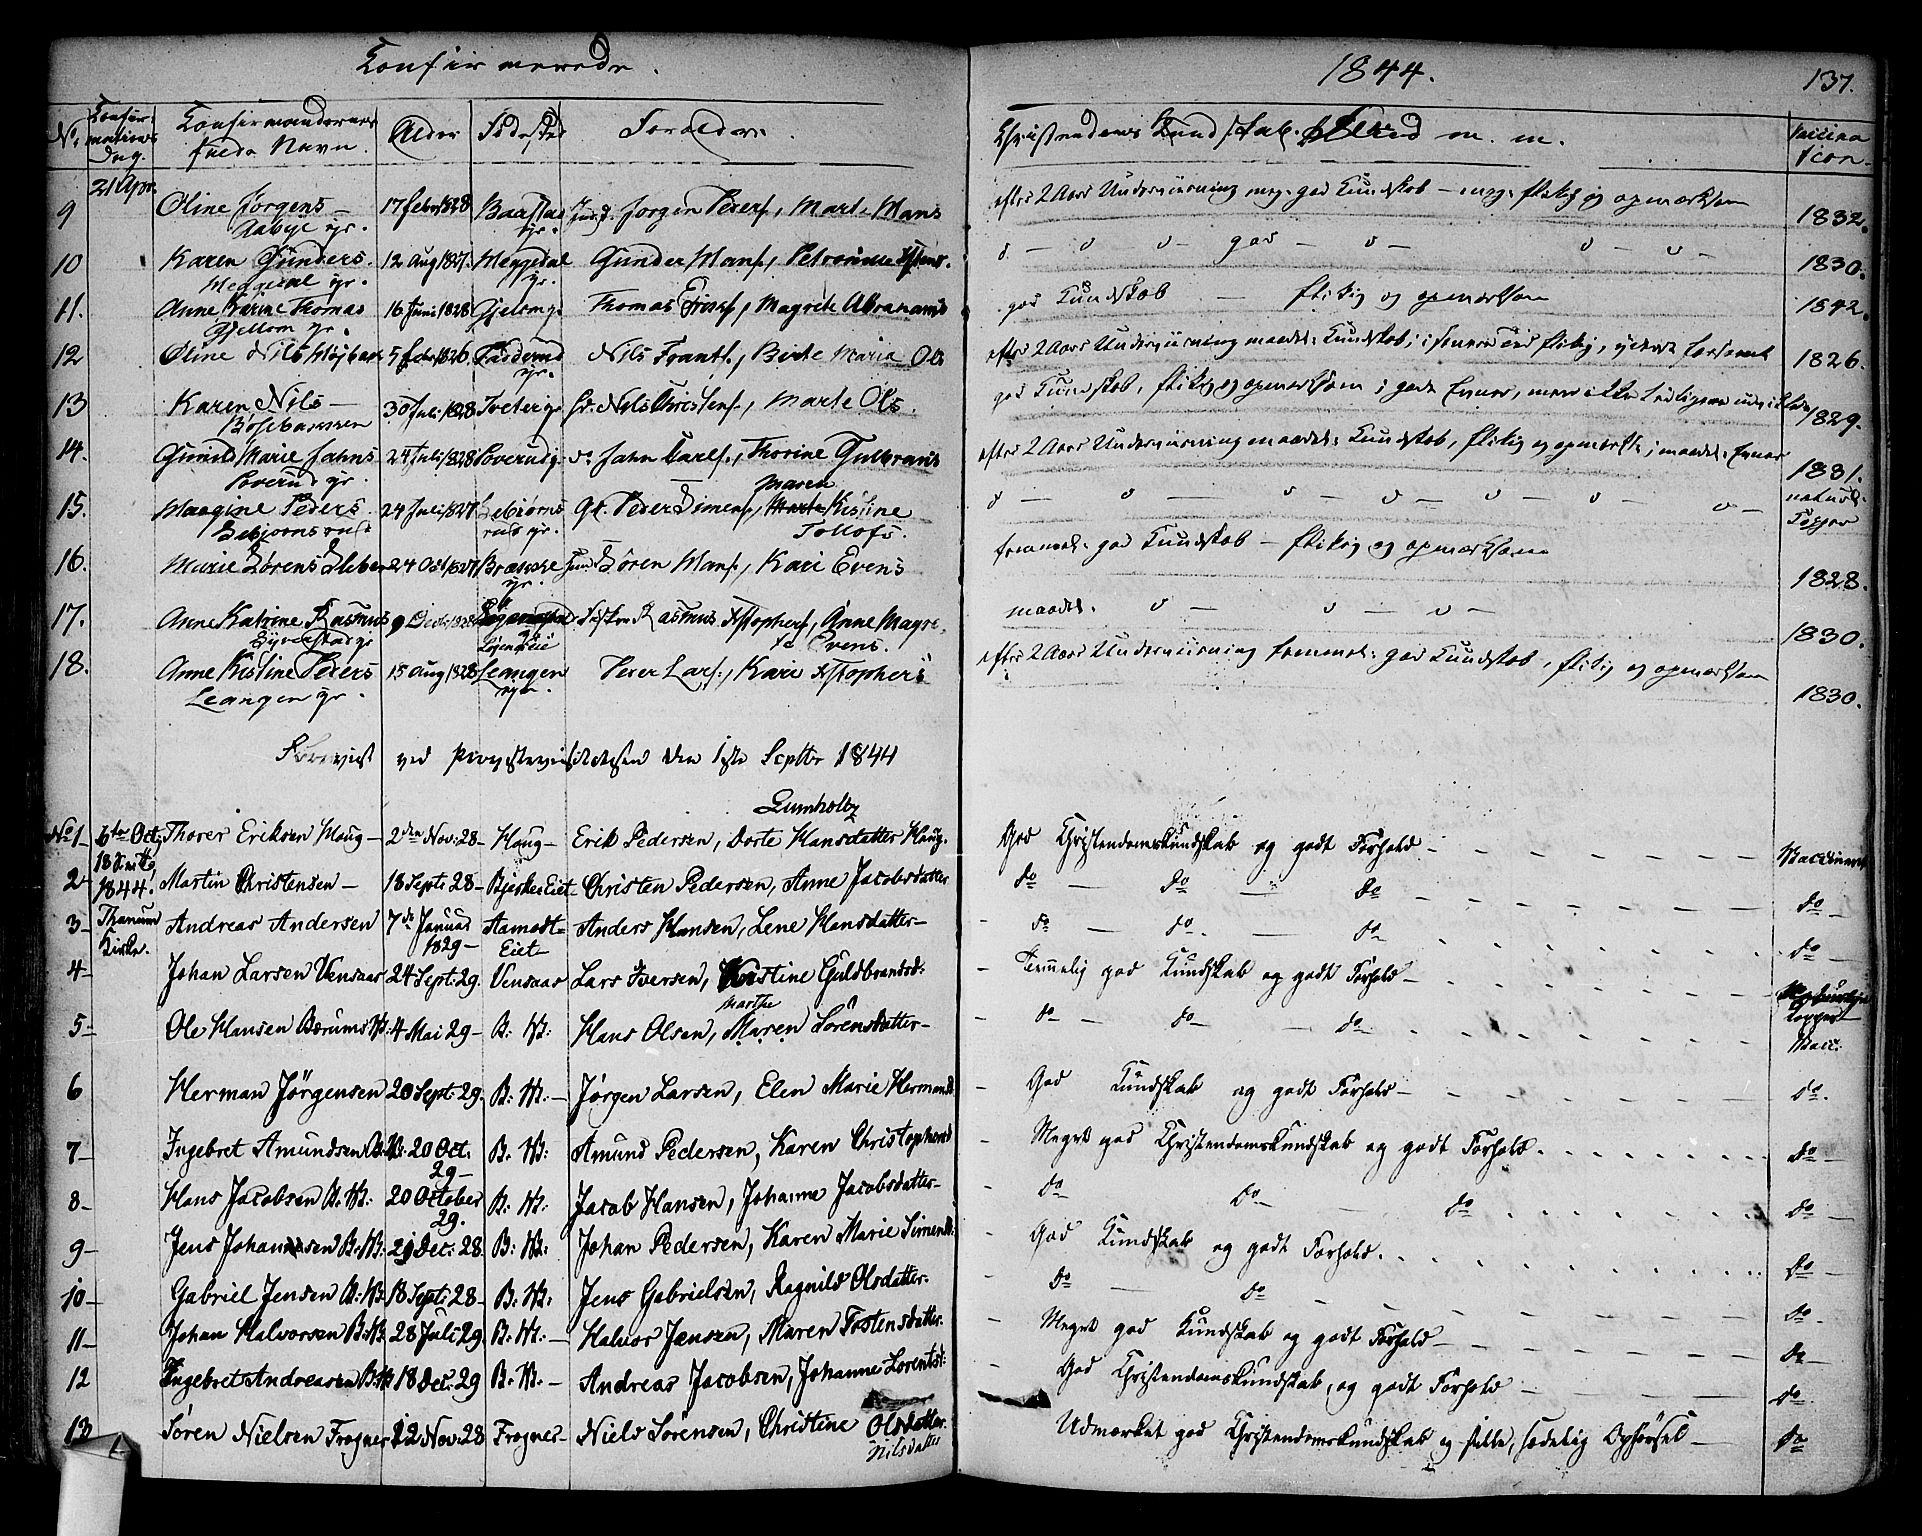 Confirmerede.
1844.
137.
No. Confirmations Dag. Confirmandernes fulde Navn. Alder Födested Foreldre.
Christendoms Kundskab, Flid m. m. Vaccination
21 Apr.
9 Oline Jorgens — Aabye gr. 17 Febr 1828 Baastad gr. Jorgen Peders., Marte Hans
efter 2 Aars Underviisning meg. god Kundskab — meg. flittig og opmærksom 1832.
10 Karen Gunders. Meggedal gr. 12 Aug 1827. Meggedal gr. Gunder Hans., Petronime
d — d d — god — d — d — d — 1830.
11. Anne Karine Thomas Gjellom gr. 16 Juni 1828 Gjelomgr Thomas, Magrete Abrahams
god Kundskab — flittig og opmærksom 1842.
12 Oline Nils 5 Febr 1826. gr. Nils Frants., Birte Maria Ols
efter 2 Aars Underviisning maadel. Kundskab; flittig, 1826.
13 Karen Nils — 30 Juli 1828 Nils Christens., Marte Ols.
god Kundskab, flittig og opmærksom, gode Evner, men ikke 1829.
14. Gunild Marie Jahns Poverud gr. 24 Juli 1828 Poverudgr Jahn Carls., Thorine Gulbrans
efter 2 Aars Underviisning maadel. Kundskab, flittig og opmærks.; maadel. Evner 1831.
15. Maagine Peders. 24 Juli 1827 gr. Peder Simens., Maren Kistine Tollofs.
d — d — d — d — d — d — d — naturl. Kopper
16. Marie Sörens 24 Oct 1827 gr. Sören Hans., Kari Evens
temmel. god Kundskab — flittig og opmærksom 1828.
17. Anne Katrine Rasmus 9 Decbr 1828 Rasmus Kstophers., Anne Magrete Evens.
maadel. d — d — d — 1830.
18. Anne Kistine Peders Leangen gr. 15 Aug 1828 Leangen gr. Peder Lars., Kari Kstophers
efter 2 Aars Underviisning temmel. god Kundskab, flittig og opmærksom 1830.
Foreviist ved Provstevisitatsen den 1ste Septbr 1844
Lumholtz
No 1 6te Oct: Thorer Eriksen Haug — 2den Nov: 28 — Haug — Erik Pedersen, Dorte Hansdatter Haug.
God Christendomskundskab og godt Forhold — Vaccineret
2 — 1844. Martin Christensen — 18 Sept: 28 — Bjerke Eiet Christen Pedersen, Anne Jacobsdatter
do — do — do do —
3 — Tanum Kirke. Andreas Andersen 7de Januar 1829 — Aamodt Eiet Anders Hansen, Lene Hansdatter —
do — do — do do —
4 — Johan Larsen Vensaas 24 Sept: 29. Vensaas Lars Iversen, Kristine Guldbrandsd:
Temmelig god Kundskab og godt Forhold — Kopper
5 — Ole Hansen Bærums V: 4 Mai 29 — B: V: Hans Olsen, Marthe Maren Sörensdatter —
do — do — do Vacc:
6 Herman Jörgensen 20 Sept: 29. B: V: — Jörgen Larsen, Elen Marie Hermansd
God Kundskab og godt Forhold — do.
7 — Ingebret Amundsen B: V: 20 Oct. 29 — B: V: Amund Pedersen, Karen Christophersd
Meget god Christendomskundskab og godt Forhold. do —
8 — Hans Jacobsen B: V: 20 October 29. B: V: Jacob Hansen, Johanne Jacobsdatter —
do do — do do —
9 — Jens Johansen B: V: 21 Dec: 28. B: V: Johan Pedersen, Karen Marie Simensd:
God Kundskab og godt Forhold. do —
10 — Gabriel Jensen B: V: 18 Sept: 28 — B: V: Jens Gabrielsen, Ragnild Olsdatter.
do — do do —
11 — Johan Halvorsen B: V: 28 Juli 29. B: V: — Halvor Jensen, Maren Tostensdatter
Meget god Kundskab og godt Forhold — do —
12 Ingebret Andreasen B: V: 18 Dec: 29 B: V: — Andreas Jacobsen, Johanne Lorentsd:
God Christendomskundskab, og godt Forhold — do —
13 Sören Nielsen Frogner 12 Nov: 28 Frogner — Niels Sörensen, Christine Olsdatter. Nilsdatter
Udmærket god Christendomskundskab og stille, sædelig Opförsel — do